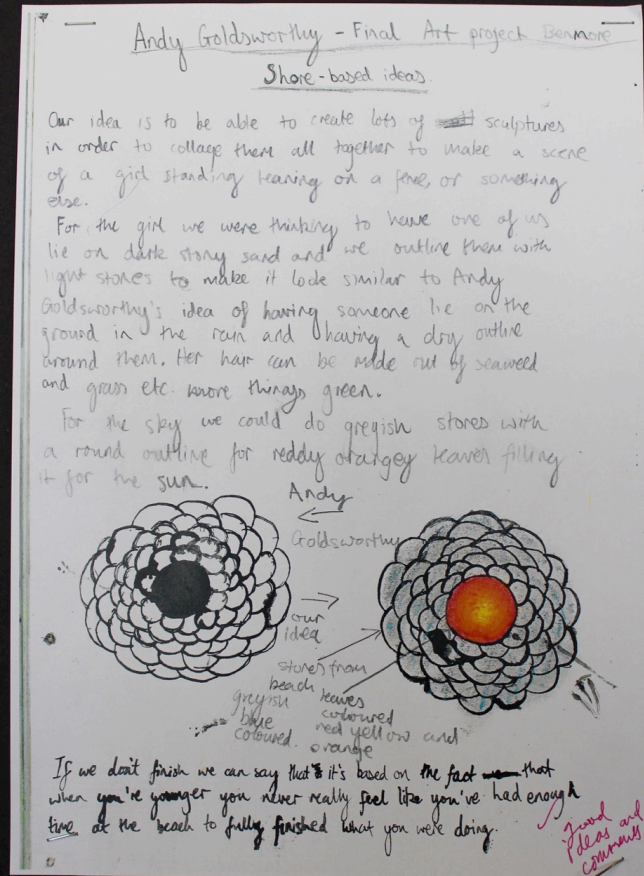 Andy Goldsworthy - Final Art project Benmore
Shore-based ideas.
Our idea is to be able to create lots of sculptures
in order to collage them all together to make a scene
of a girl standing leaning on a fence, or something
else.
For the girl we were thinking to have one of us
lie on dark stony sand and we outline them with
light stones to make it look similar to Andy
Goldsworthy's idea of having someone lie on the
ground in the rain and having a dry outline
around them. Her hair can be made out of seaweed
and grass etc. more things green.
For the sky we could do greyish stones with
a round outline for reddy orangey leaves filling
it for the sun.
Andy
Goldsworthy
our
idea
stones from
beach
greyish
blue
coloured.
leaves
coloured
red yellow and
orange
If we don't finish we can say that it's based on the fact that
when you're younger you never really feel like you've had enough
time at the beach to fully finished what you were doing.
Good
Ideas and
comments